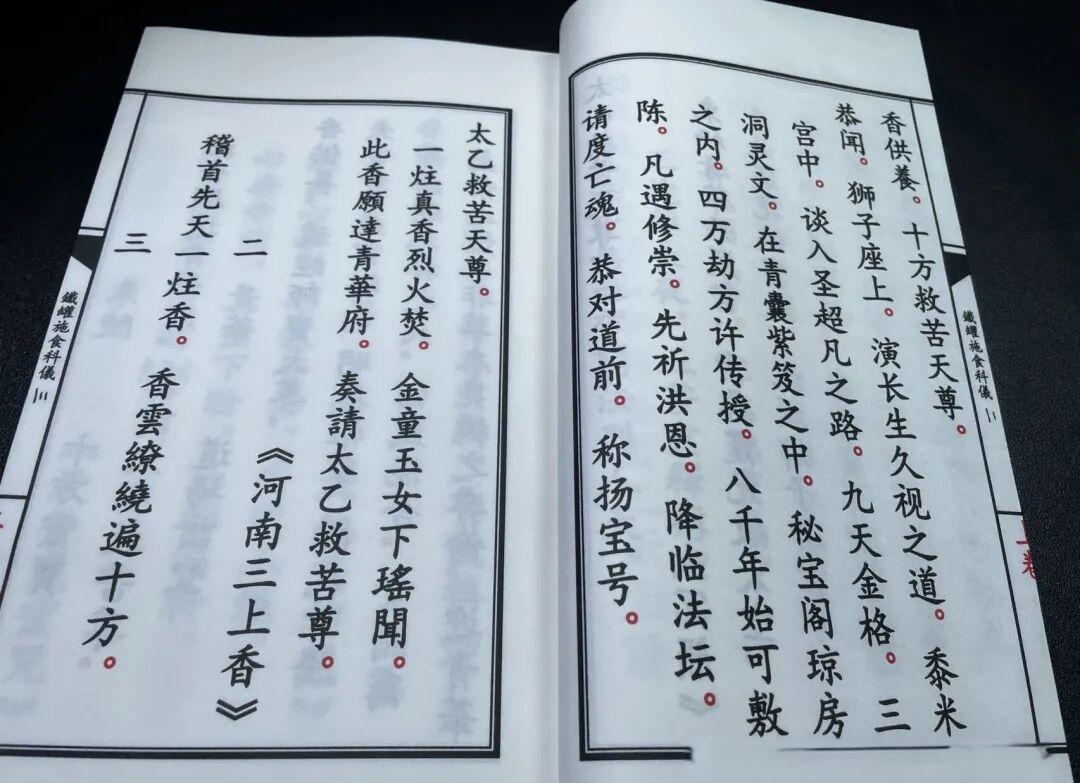 鐵罐施食科儀
香供養。十方救苦天尊。
恭闻。狮子座上。演长生久视之道。黍米
宫中。谈入圣超凡之路。九天金格。三
洞灵文。在青囊紫笈之中。秘宝阁琼房
之内。四万劫方许传授。八千年始可敷
陈。凡遇修崇。先祈洪恩。降临法坛。
请度亡魂。恭对道前。称扬宝号。
太乙救苦天尊。
一炷真香烈火焚。金童玉女下瑤聞。
此香願達青華府。奏請太乙救苦尊。
《河南三上香》
二
稽首先天一炷香。香雲繚繞遍十方。
三
鐵罐施食科儀